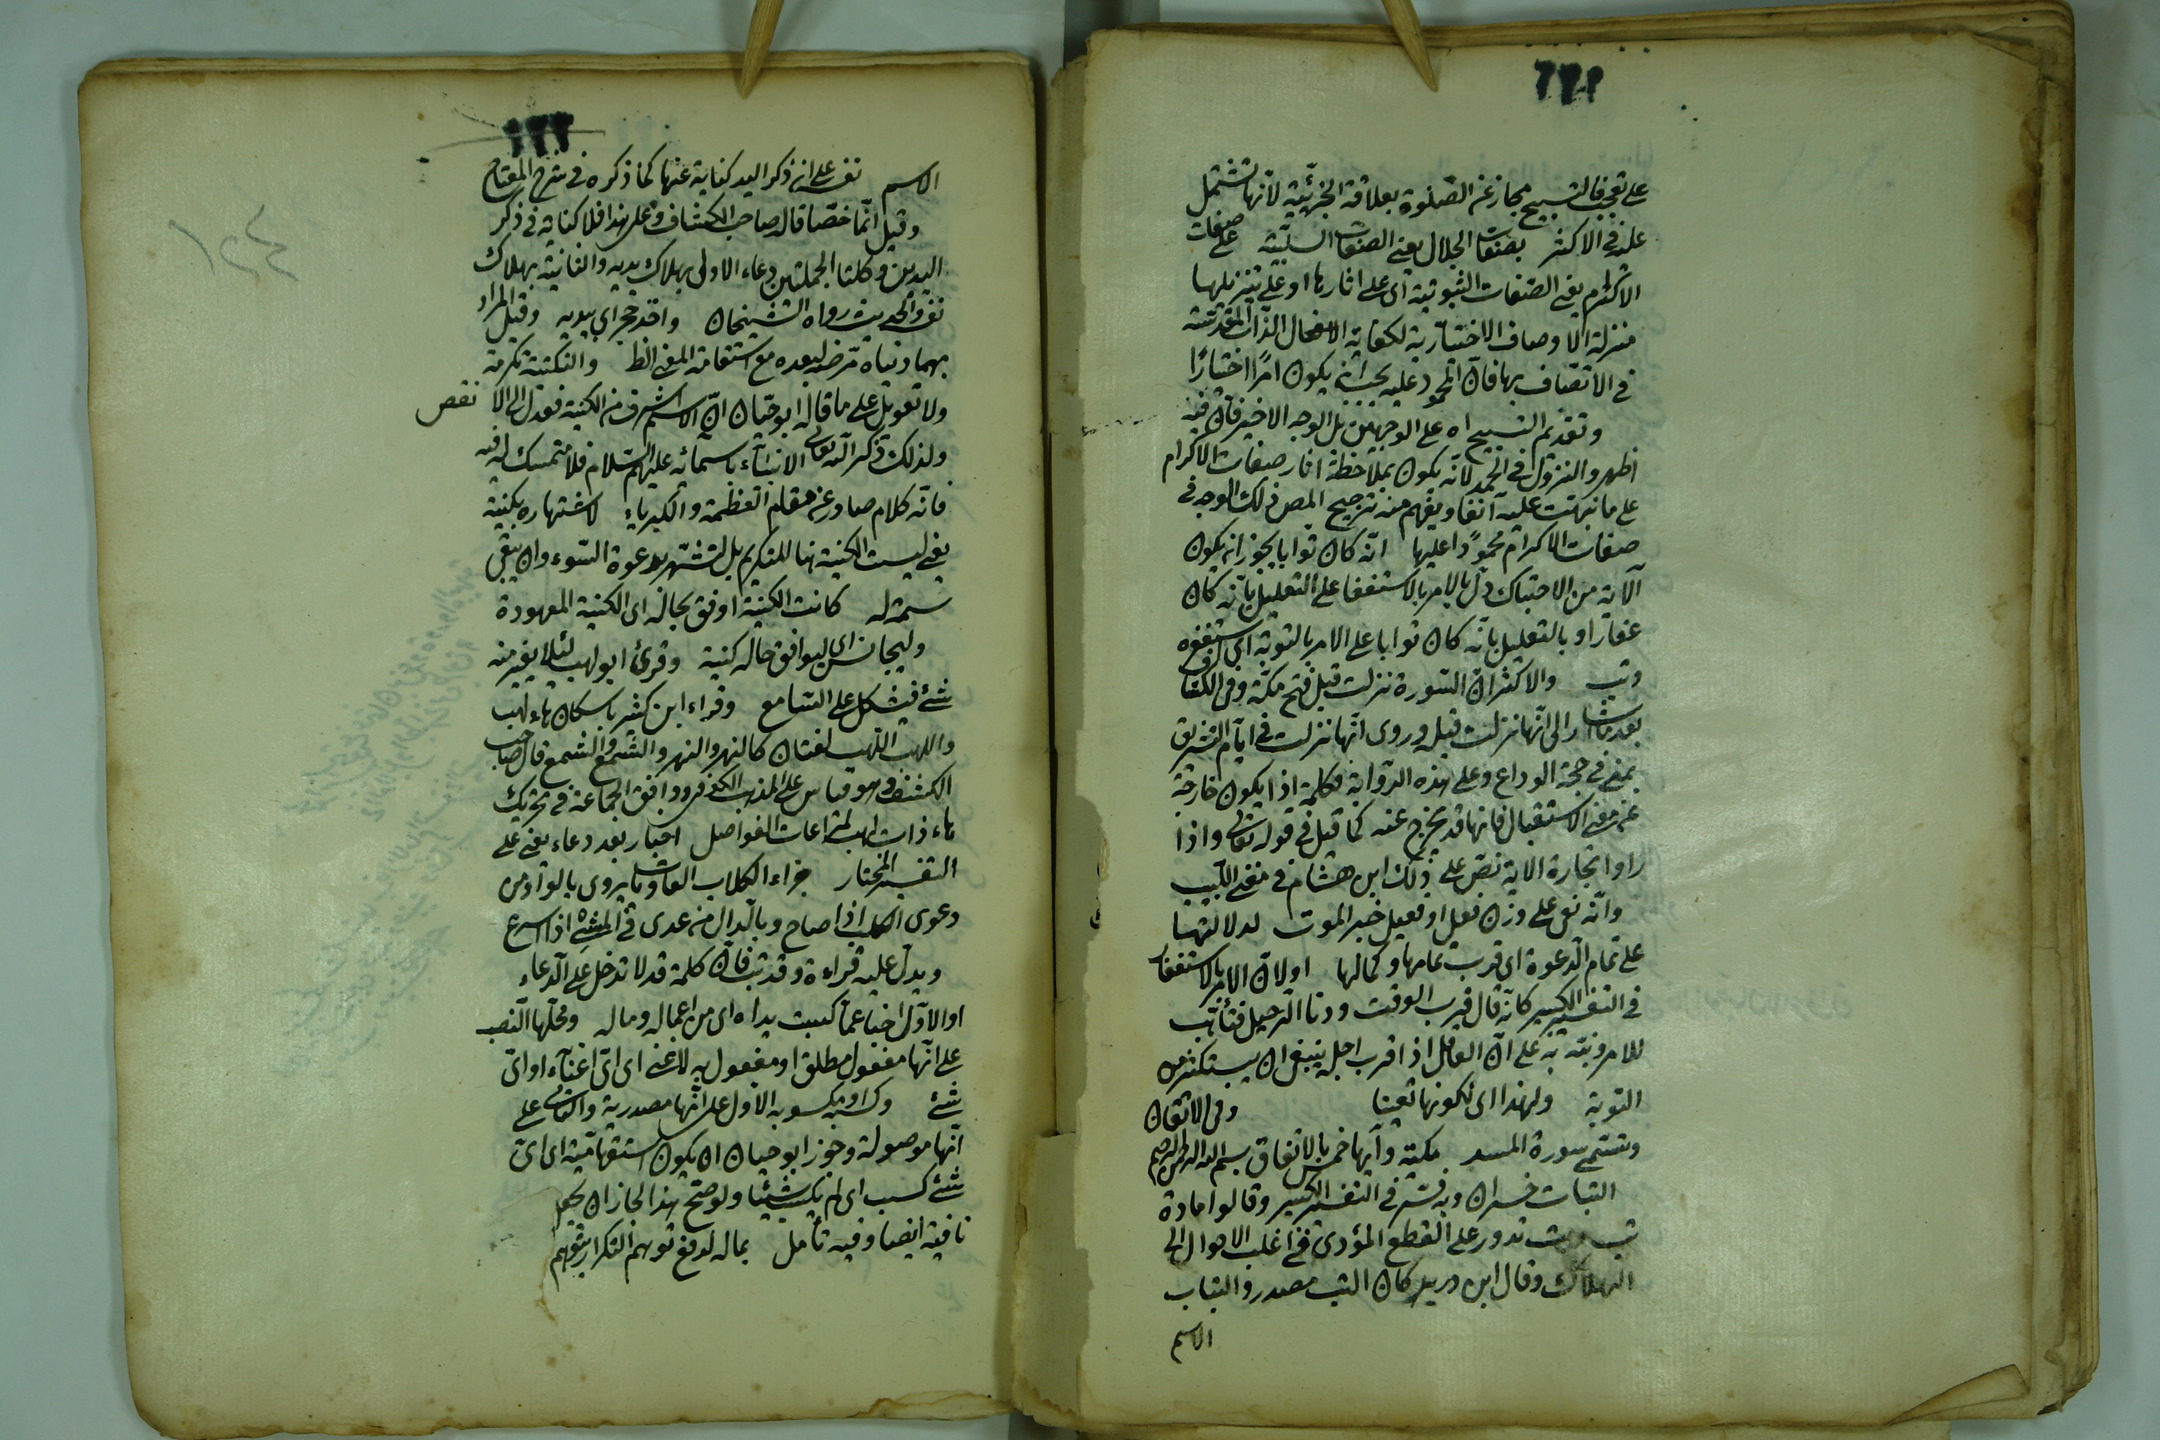 على تعجب فالتسبيح مجاز عن الصلوة بعلاقة الجزئية لأنها تشتمل
عليه في الاكثر بصفات الجلال يعنى الصفات السلبية على صفات
الاكرام يعنى الصفات الثبوتية اى على اثارها او على تنزيلها
منزلة الاوصاف الاختيارية لكفاية الذات المقدسة
في الاتصاف بها فان المحمود عليه يجب ان يكون امرًا اختياريًا
وتقديم التسبيح اه على الوجهين بل الوجه الاخير فان فيه
اظهر والنزول في الحمد لانه يكون بملاحظة اثار صفات الاكرام
على ما نبهت عليه آنفا ويفهم منه ترجيح المص ذلك الوجه في
صفات الاكرام محمودًا عليها انه كان توابا يجوز ان يكون
الآية من الاحتباك دل بالامر بالاستغفار على التعليل بانه كان
غفارا وبالتعليل بانه كان توابا على الامر بالتوبة اى استغفره
وتب والاكثر ان السورة نزلت قبل فتح مكة وفي الكشاف
انها نزلت قبله وروى انها نزلت في ايام التشريق
بمنى في حجة الوداع وعلى هذه الرواية فكلمة اذا يكون خارجة
عن معنى الاستقبال فانها قد تخرج عنه كما قيل في قوله تعالى واذا
راوا تجارة الاية نص على ذلك ابن هشام في مغنى اللبيب
وانه نعى على وزن فعل او فعيل خبر الموت لدلالتها
على تمام الدعوة اى قرب تمامها وكمالها او لان الامر بالاستغفار
في التفسير الكبير كانه قال قرب الوقت ودنا الرحيل فتأهب
للامر ونبه به على ان العاقل اذا قرب اجله ينبغى ان يستكثر من
التوبة ولهذا اى لكونها نعيا وفي الاتقان
وتسمى سورة المسد مكية وآيها خمس بالاتفاق بسم الله الرحمن الرحيم
التباب خسران وبه فسر في التفسير الكبير وقالوا مادة
تب وبت تدور على القطع المؤدى في اغلب الاحوال الى
الهلاك وقال ابن دريد كان التب مصدر والتباب
الاسم
الاسم نفسه على ان ذكر اليد كناية عنها كما ذكره في شرح المفتاح
وقيل انما خصتا قاله صاحب الكشاف وعلى هذا فلا كناية في ذكر
اليدين وكلتا الجملتين دعاء الاولى بهلاك يديه والثانية بهلاك
نفسه والحديث رواه الشيخان واخذ حجر اى بيديه وقيل المراد
بهما دنياه مرضه لبعده مع استقامة المعنى الظ والتكنية تكرمة
ولا تعويل على ما قاله ابو حيان ان الاسم اشرف من الكنية فعدل الى الانقص
ولذلك ذكر الله تعالى الانبياء باسمائهم عليهم السلام فلا متمسك له فيه
فانه كلام صادر عن مقام العظمة والكبرياء لاشتهاره بكنيته
يعنى ليست الكنية هنا للتكريم بل لتشهيره بدعوة السوء وان يبقى
سمة له كانت الكنية اوفق بحاله اى الكنية المعهودة
وليجانس اى ليوافق حاله كنيته وقرئ ابو لهب لئلا يغير منه
شئ فيشكل على السامع وقراء ابن كثير باسكان هاء لهب
واللهب اللهب لغتان كالنهر والنهر والشمع والشمع قال صاحب
الكشف وهو قياس على المذهب الكوفى ووافق الجماعة في تحريك
هاء ذات لهب لمراعات الفواصل اخبار بعد دعاء يعنى على
التفسير المختار جزاء الكلاب العاويات يروى بالواو من
دعوى الكلب اذا صاح وبالدال من عدى في المشى اذا اسرع
ويدل عليه قراءة وقد تب فان كلمة قد لا تدخل على الدعاء
او الاول اخبار عما كسبت يداه اى من اعماله وماله ومحلها النصب
على انها مفعول مطلق او مفعول به لاغنى اى اى اغناء او اى
شئ وكسبه او مكسوبه الاول على انها مصدرية والثانى على
انها موصولة وجوز ابو حيان ان يكون استفهامية اى اى
شئ كسب اى لم يكسب شيئا ولو صح هذا لجاز ان يجعل
نافية ايضا وفيه تأمل بماله لدفع توهم التكرار بتوهم